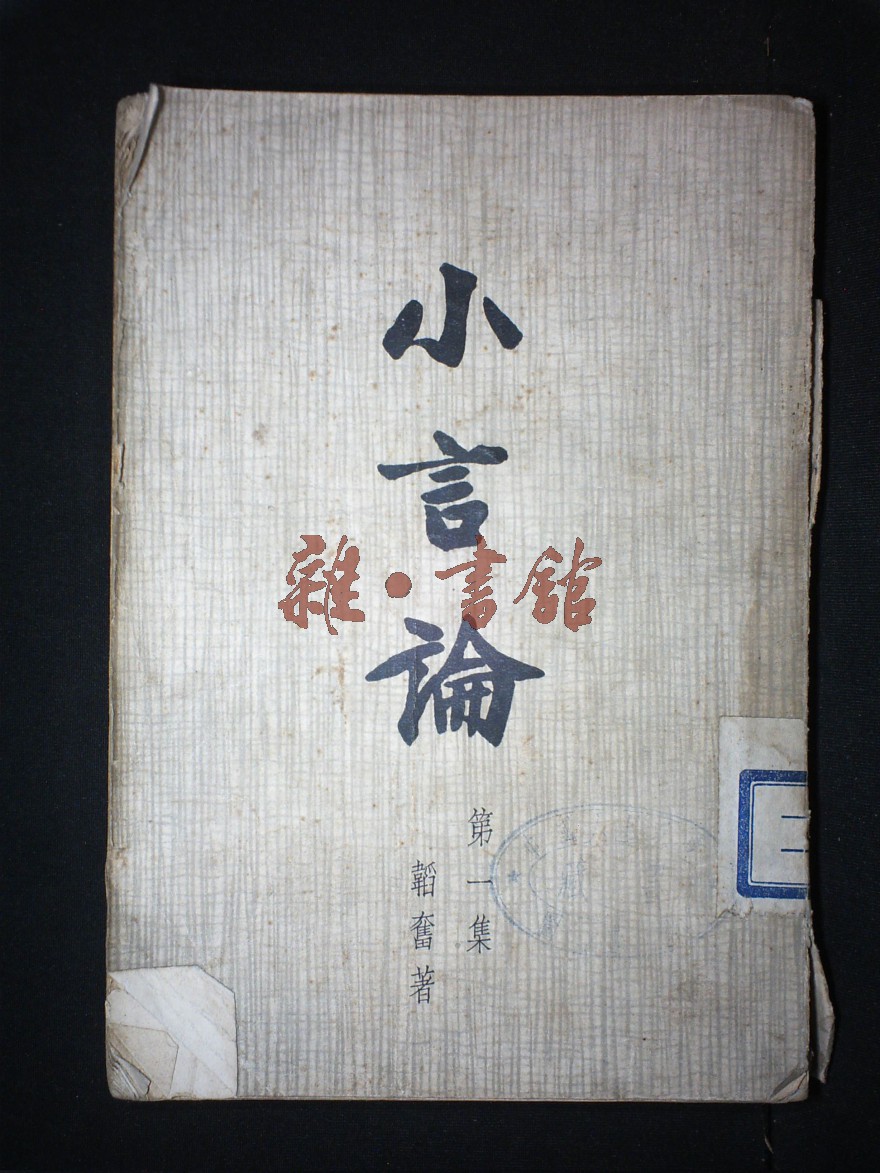 小言論
雜·書舘
第一集
韜奮著